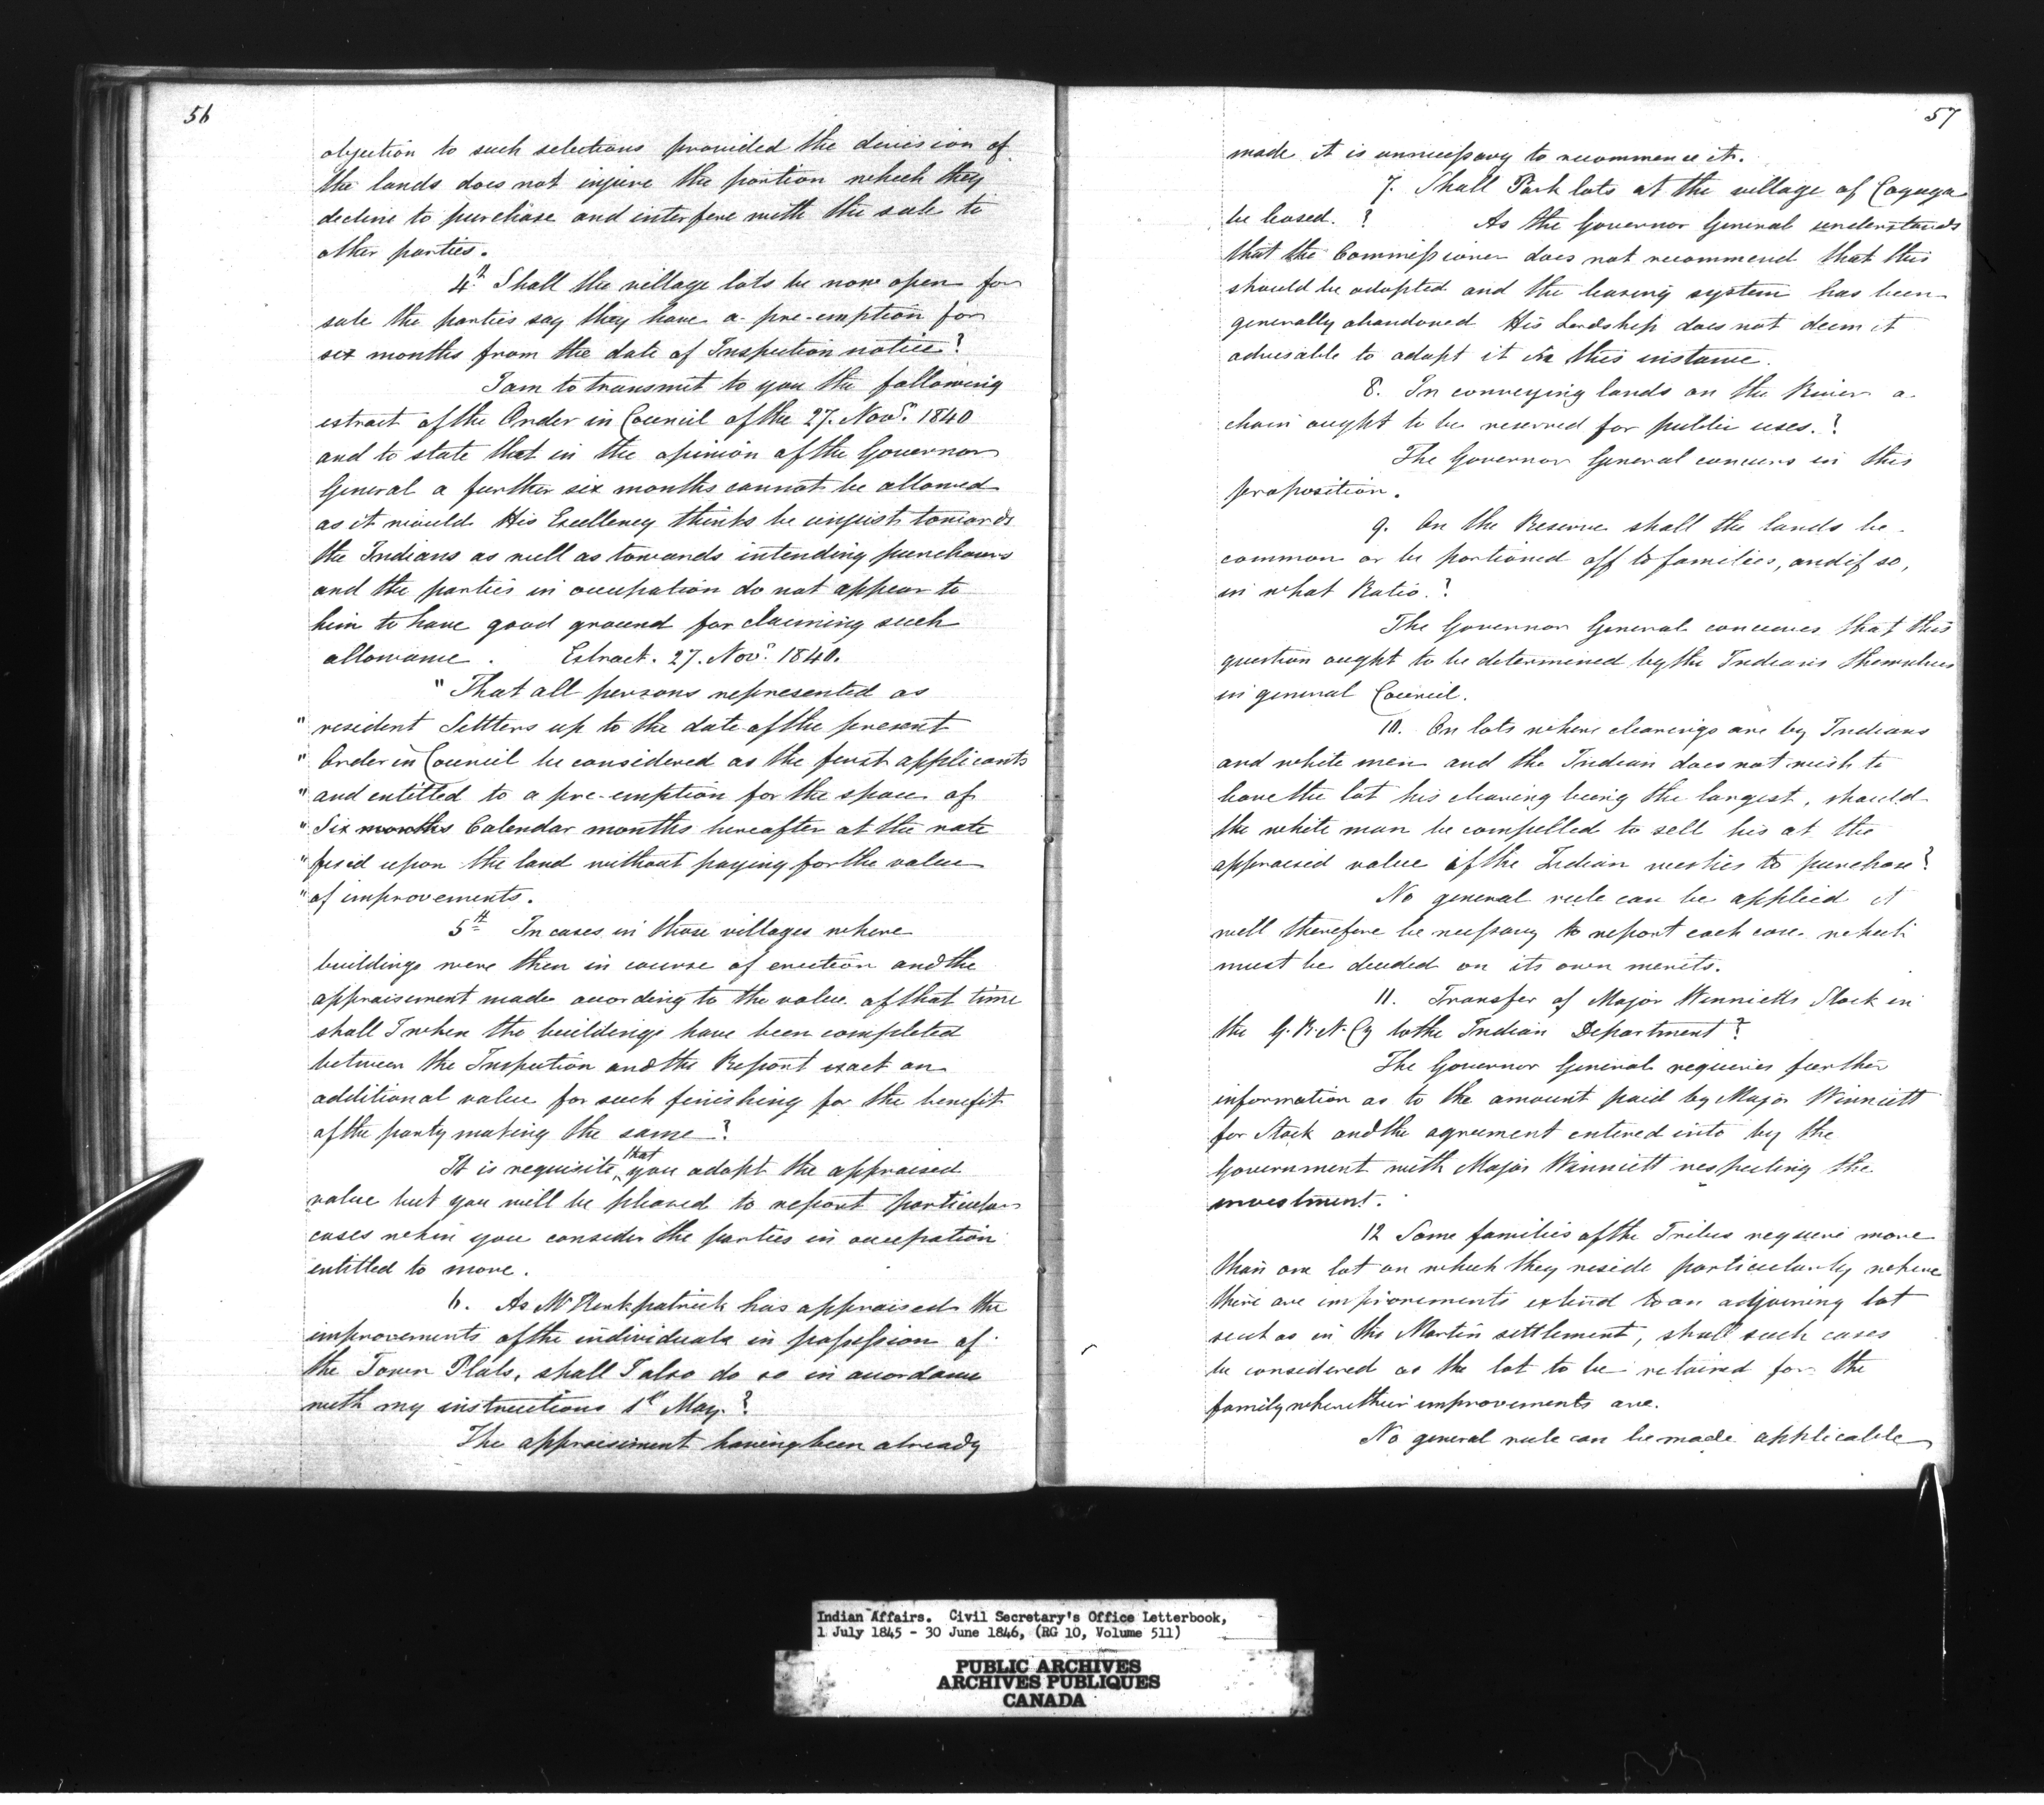 56
objection to such selections provided the division of
the lands does not injure the portion which they
decline to purchase and interfere with the sale to
other parties.
4th Shall the village lots be now open for
sale the parties say they have a pre-emption for
six months from the date of Inspection notice?
I am to transmit to you the following
extract of the Order in Council of the 27. Novr. 1840
and to state that in the opinion of the Governor
General a further six months cannot be allowed
as it would His Excellency thinks be unjust towards
the Indians as well as towards intending purchasers
and the parties in occupation do not appear to
him to have good ground for claiming such
allowance. Extract. 27. Novr. 1840.
"That all persons represented as
" resident Settlers up to the date of the present
" Order in Council be considered as the first applicants
" and entitled to a pre-emption for the space of
" Six months Calendar months hereafter at the rate
" fixed upon the land without paying for the value
" of improvements.
5th In cases in those villages where
buildings were then in course of erection and the
appraisement made according to the value of that time
shall I when the buildings have been completed
between the Inspection and the Report exact an
additional value for such finishing for the benefit
of the party making the same?
It is requisite that you adopt the appraised
value but you will be pleased to report particular
cases when you consider the parties in occupation
entitled to more.
6. As Mr Kirkpatrick has appraised the
improvements of the individuals in possession of
the Town Plats, shall I also do so in accordance
with my instructions 1st May?
The appraisement having been already
57
made it is unnecessary to recommence it.
7. Shall Park lots at the village of Cayuga
be leased.? As the Governor General understands
that the Commissioner does not recommend that this
should be adopted and the leasing system has been
generally abandoned His Lordship does not deem it
advisable to adopt it in this instance.
8. In conveying lands on the River a
chain ought to be reserved for public uses.?
The Governor General concurs in this
proposition.
9. On the Reserve shall the lands be
common or be portioned off to families, and if so,
in what Ratio.?
The Governor General conceives that this
question ought to be determined by the Indians themselves
in general Council.
10. On lots where clearings are by Indians
and white men and the Indian does not wish to
leave the lot his clearing being the largest, should
the white man be compelled to sell his at the
appraised value if the Indian wishes to purchase?
No general rule can be applied it
will therefore be necessary to report each case which
must be decided on its own merits.
11. Transfer of Major Winnietts Stock in
the G.R.N. Cy to the Indian Department?
The Governor General requires further
information as to the amount paid by Major Winniett
for Stock and the agreement entered into by the
Government with Major Winniett respecting the
investment.
12 Some families of the Tribes require more
than one lot on which they reside particularly where
there are improvements extend to an adjoining lot
such as in the Martin settlement, shall such cases
be considered as the lot to be retained for the
family where their improvements are.
No general rule can be made applicable
Indian Affairs. Civil Secretary's Office Letterbook,
1 July 1845 - 30 June 1846, (RG 10, Volume 511)
PUBLIC ARCHIVES
ARCHIVES PUBLIQUES
CANADA